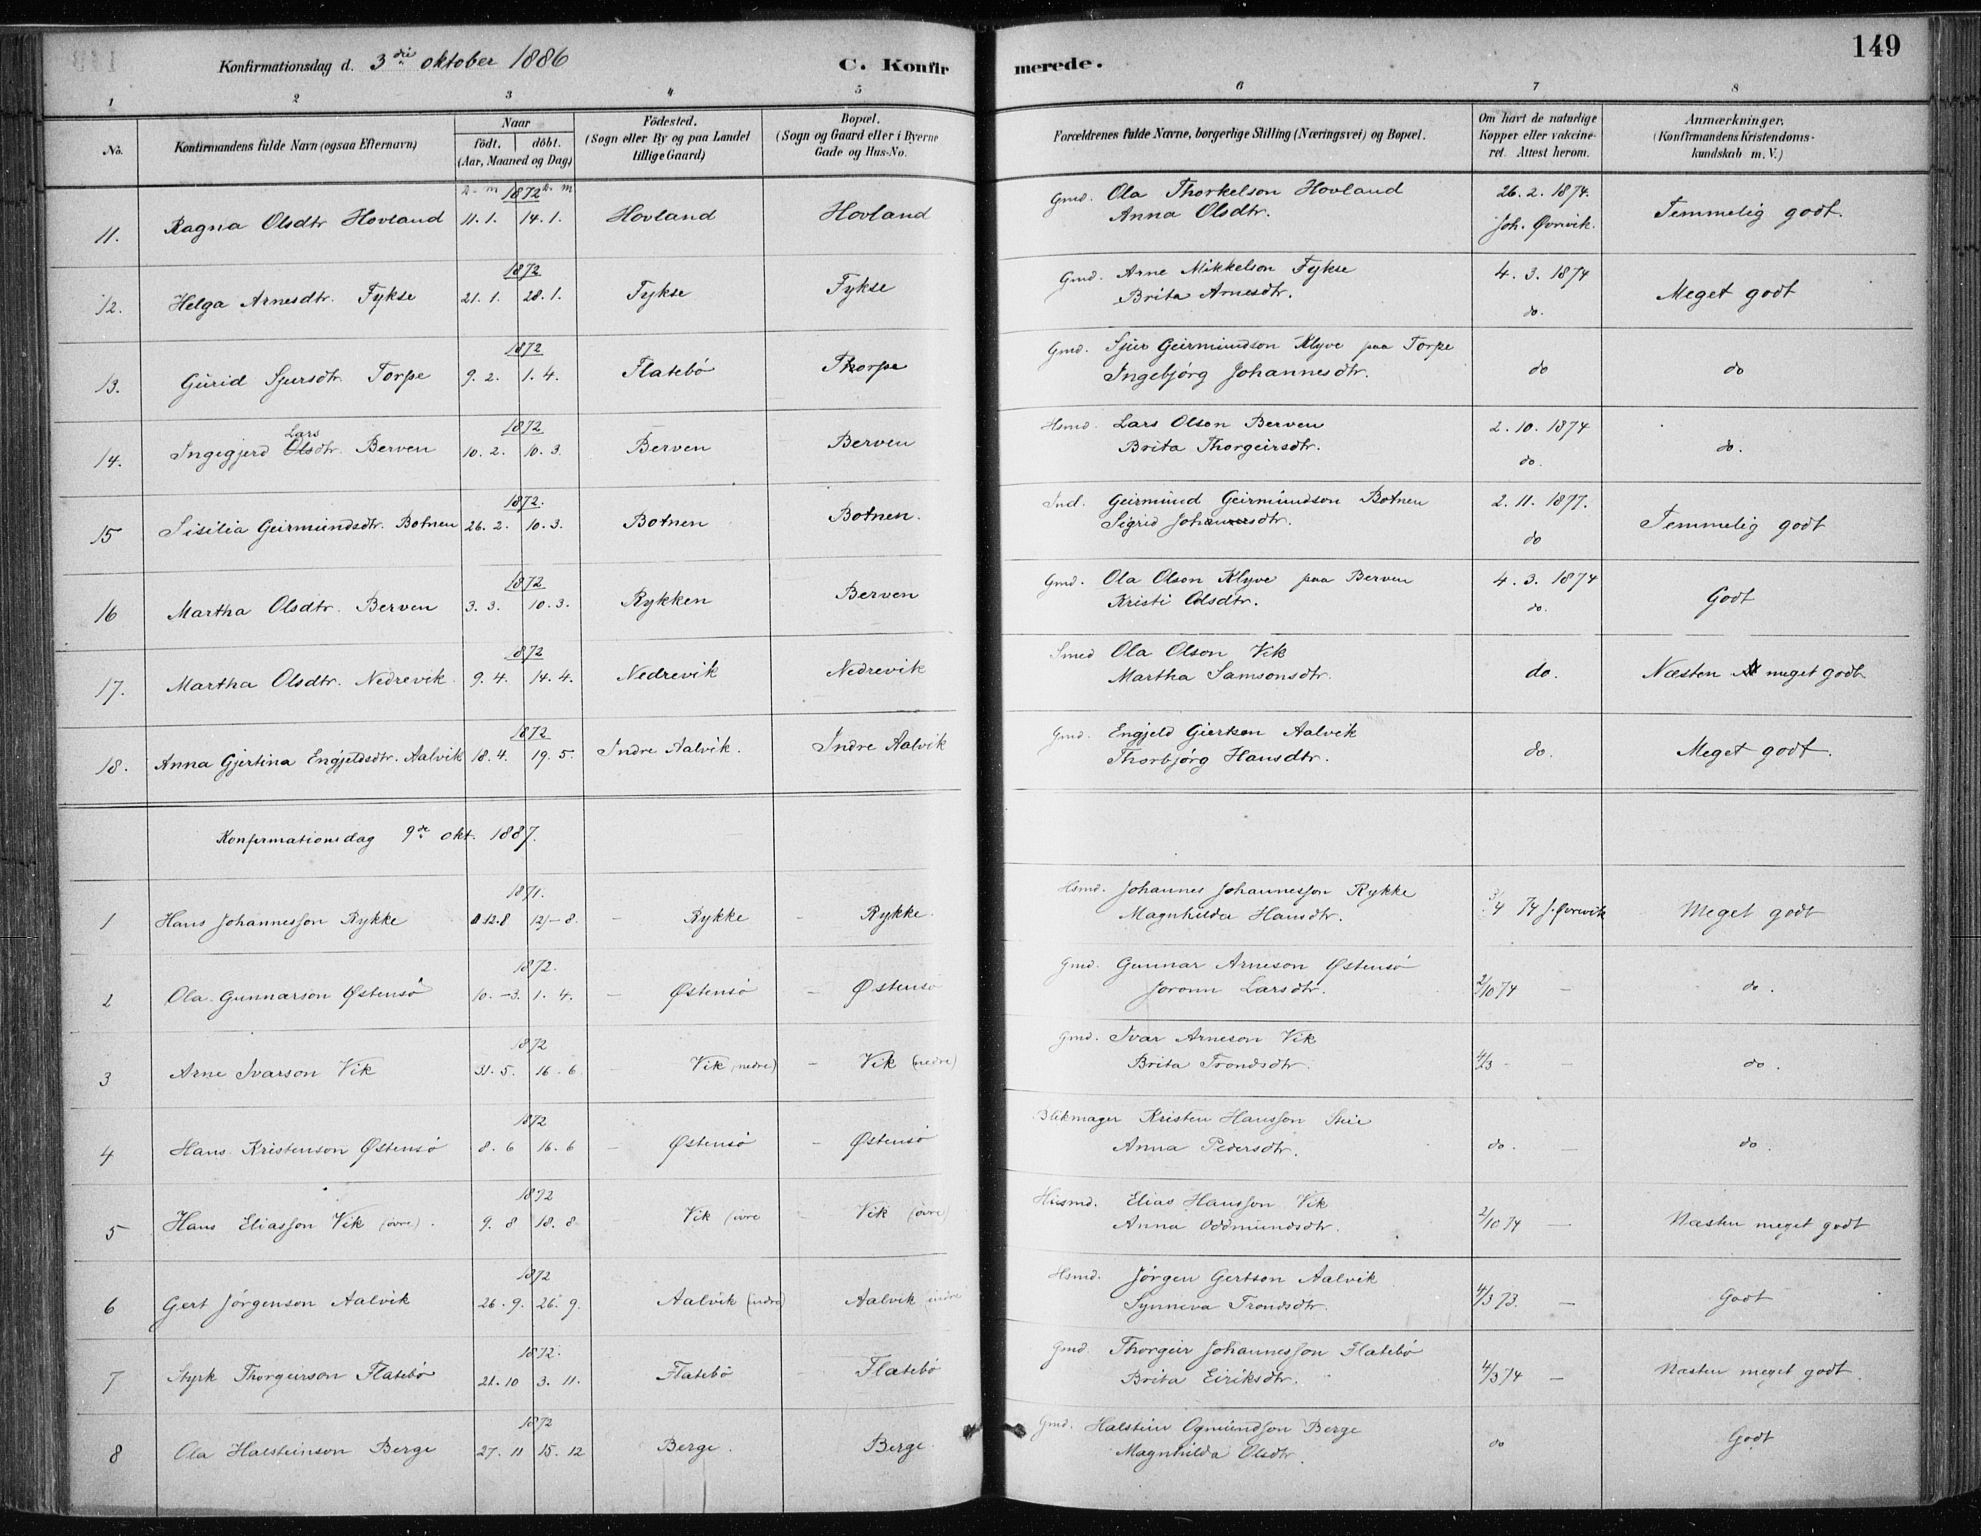 149
Konfirmationsdag d. 3die oktober 1886
C. Konfirmerede.
1 2 3 4 5 6 7 8
No. Konfirmandens fulde Navn (ogsaa Efternavn) Naar födt. döbt. (Aar, Maaned og Dag) Födested. (Sogn eller By og paa Landet tillige Gaard) Bopæl. (Sogn og Gaard eller i Byerne Gade og Hus-No. Forældrenes fulde Navne, borgerlige Stilling (Næringsvei) og Bopæl. Om havt de naturlige Kopper eller vaccineret. Attest herom. Anmærkninger, (Konfirmandens Kristendomskundskab m. V.)
D. m 1872 D. m
11. Ragna Olsdtr Hovland 11. 1. 14. 1. Hovland Hovland Gmd. Ola Thorkelson Hovland 26. 2. 1874.
Anna Olsdtr. Joh. Øvrevik. Temmelig godt.
1872
12. Helga Arnesdtr. Fykse 21. 1. 28. 1. Fykse Fykse Gmd. Arne Mikkelson Fykse 4. 3. 1874
Brita Arnesdtr. do. Meget godt
1872
13. Gurid Sjursdtr. Torpe 9. 2. 1. 4. Flatebö Thorpe Gmd. Sjur Geirmundson Klyve paa Torpe
Ingebjørg Johannesdtr. do do
Lars 1872
14. Ingigjerd Olsdtr. Berven 10. 2. 10. 3. Berven Berven Hsmd. Lars Olson Berven 2. 10. 1874
Brita Thorgeirsdtr. do. do.
1872.
15 Sisilia Geirmundsdtr. Botnen 26. 2. 10. 3. Botnen Botnen. Ind. Geirmund Geirmundson Botnen 2. 11. 1877.
Sigrid Johannesdtr. do Temmelig godt
1872
16 Martha Olsdtr. Berven 3. 3. 10. 3. Rykken Berven Gmd. Ola Olson Klyve paa Berven 4. 3. 1874
Kristi Olsdtr. do. Godt
1872
17. Martha Olsdtr. Nedrevik. 9. 4. 14. 4. Nedrevik Nedrevik Smed Ola Olson Vik
Martha Samsonsdtr. do. Næsten meget godt
1872
18. Anna Gjertina Engjeldsdtr. Aalvik 18. 4. 19. 5. Indre Aalvik. Indre Aalvik Gmd. Engjeld Giertson Aalvik
Thorbjørg Hansdtr. do. Meget godt.
Konfirmationsdag 9de okt. 1887.
1871.
1 Hans Johannesson Rykke 12-8 – Rykke Rykke. Hsmd. Johannes Johannesson Rykke
Magnhilda Hansdtr. 3/4 74 J. Øvrevik Meget godt
1872.
2 Ola Gunnarson Østensö 10. –3. 1. 4. – Østensö – Østensö Gmd. Gunnar Arneson Østensö
Joronn Larsdtr. 2/10 74 – do.
1872
3 Arne Ivarson Vik 31. 5. 16. 6. – Vik (nedre) – Vik (nedre) Gmd. Ivar Arneson Vik
Brita Trondsdtr. 4/3 - - do.
1872
4 Hans Kristenson Østensö 8. 6 16. 6 – Østensö – Østensö Blikmager Kristen Hansson Steie
Anna Pedersdtr. do. – do.
1872
5 Hans Eliasson Vik (övre). 9. 8 18. 8. Vik (övre Vik (övre) Husmd. Elias Hansson Vik
Anna Oddmundsdtr. 2/10 74 – Næsten meget godt
1872
6 Gert Jørgenson Aalvik 26. 9. 26. 9. Aalvik (indre) Aalvik indre Hsmd. Jørgen Gertson Aalvik
Synneva Trondsdtr. 4/3 73. – Godt
1872.
7 Styrk Thorgeirson Flatebö 21. 10 3. 11. Flatebö Flatebö Gmd. Thorgeir Johannesson Flatebö
Brita Eiriksdtr. 4/3 74 – Næsten meget godt.
1872
8 Ola Halsteinson Berge 27. 11 15. 12 Berge. Berge. Gmd. Halstein Ogmundson Berge
Magnhilda Olsdtr. do Godt